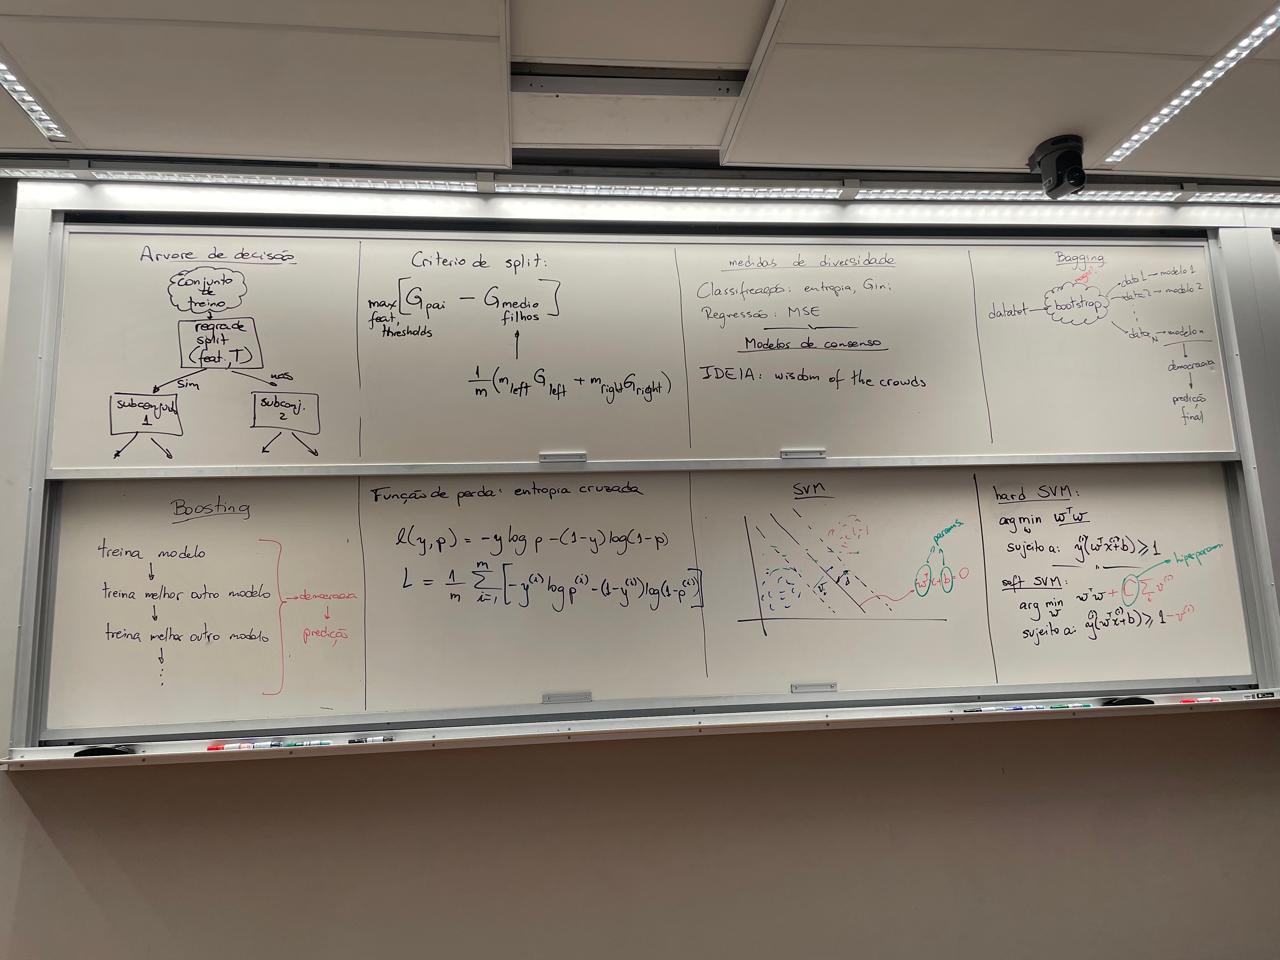 Arvore de decisão
Conjunto
de
treino
regra de
split
(feat., T)
sim
não
subconjunto
1
subconj.
2
Criterio de split:
max [G_pai − G_medio filhos]
feat,
thresholds
1/m (m_left G_left + m_right G_right)
medidas de diversidade
Classificação: entropia, Gini
Regressão: MSE
Modelos de consenso
IDEIA: wisdom of the crowds
Bagging
dataset → bootstrap
data 1 → modelo 1
data 2 → modelo 2
⋮
data N → modelo n
democracia
predição
final
Boosting
treina modelo
treina melhor outro modelo
treina melhor outro modelo
⋮
democracia
predição
Função de perda: entropia cruzada
l(y,p) = −y log p −(1−y)log(1−p)
L = 1/m Σ_{i=1}^{m} [−y^(i) log p^(i) −(1−y^(i))log(1−p^(i))]
SVM
params.
w^T x + b = 0
hard SVM:
arg min w^T w
w
sujeito a: y^(i)(w^T x^(i)+b) ⩾ 1
hiperparam.
soft SVM:
arg min w^T w + C Σ_i v^(i)
w
sujeito a: y^(i)(w^T x^(i)+b) ⩾ 1 − v^(i)